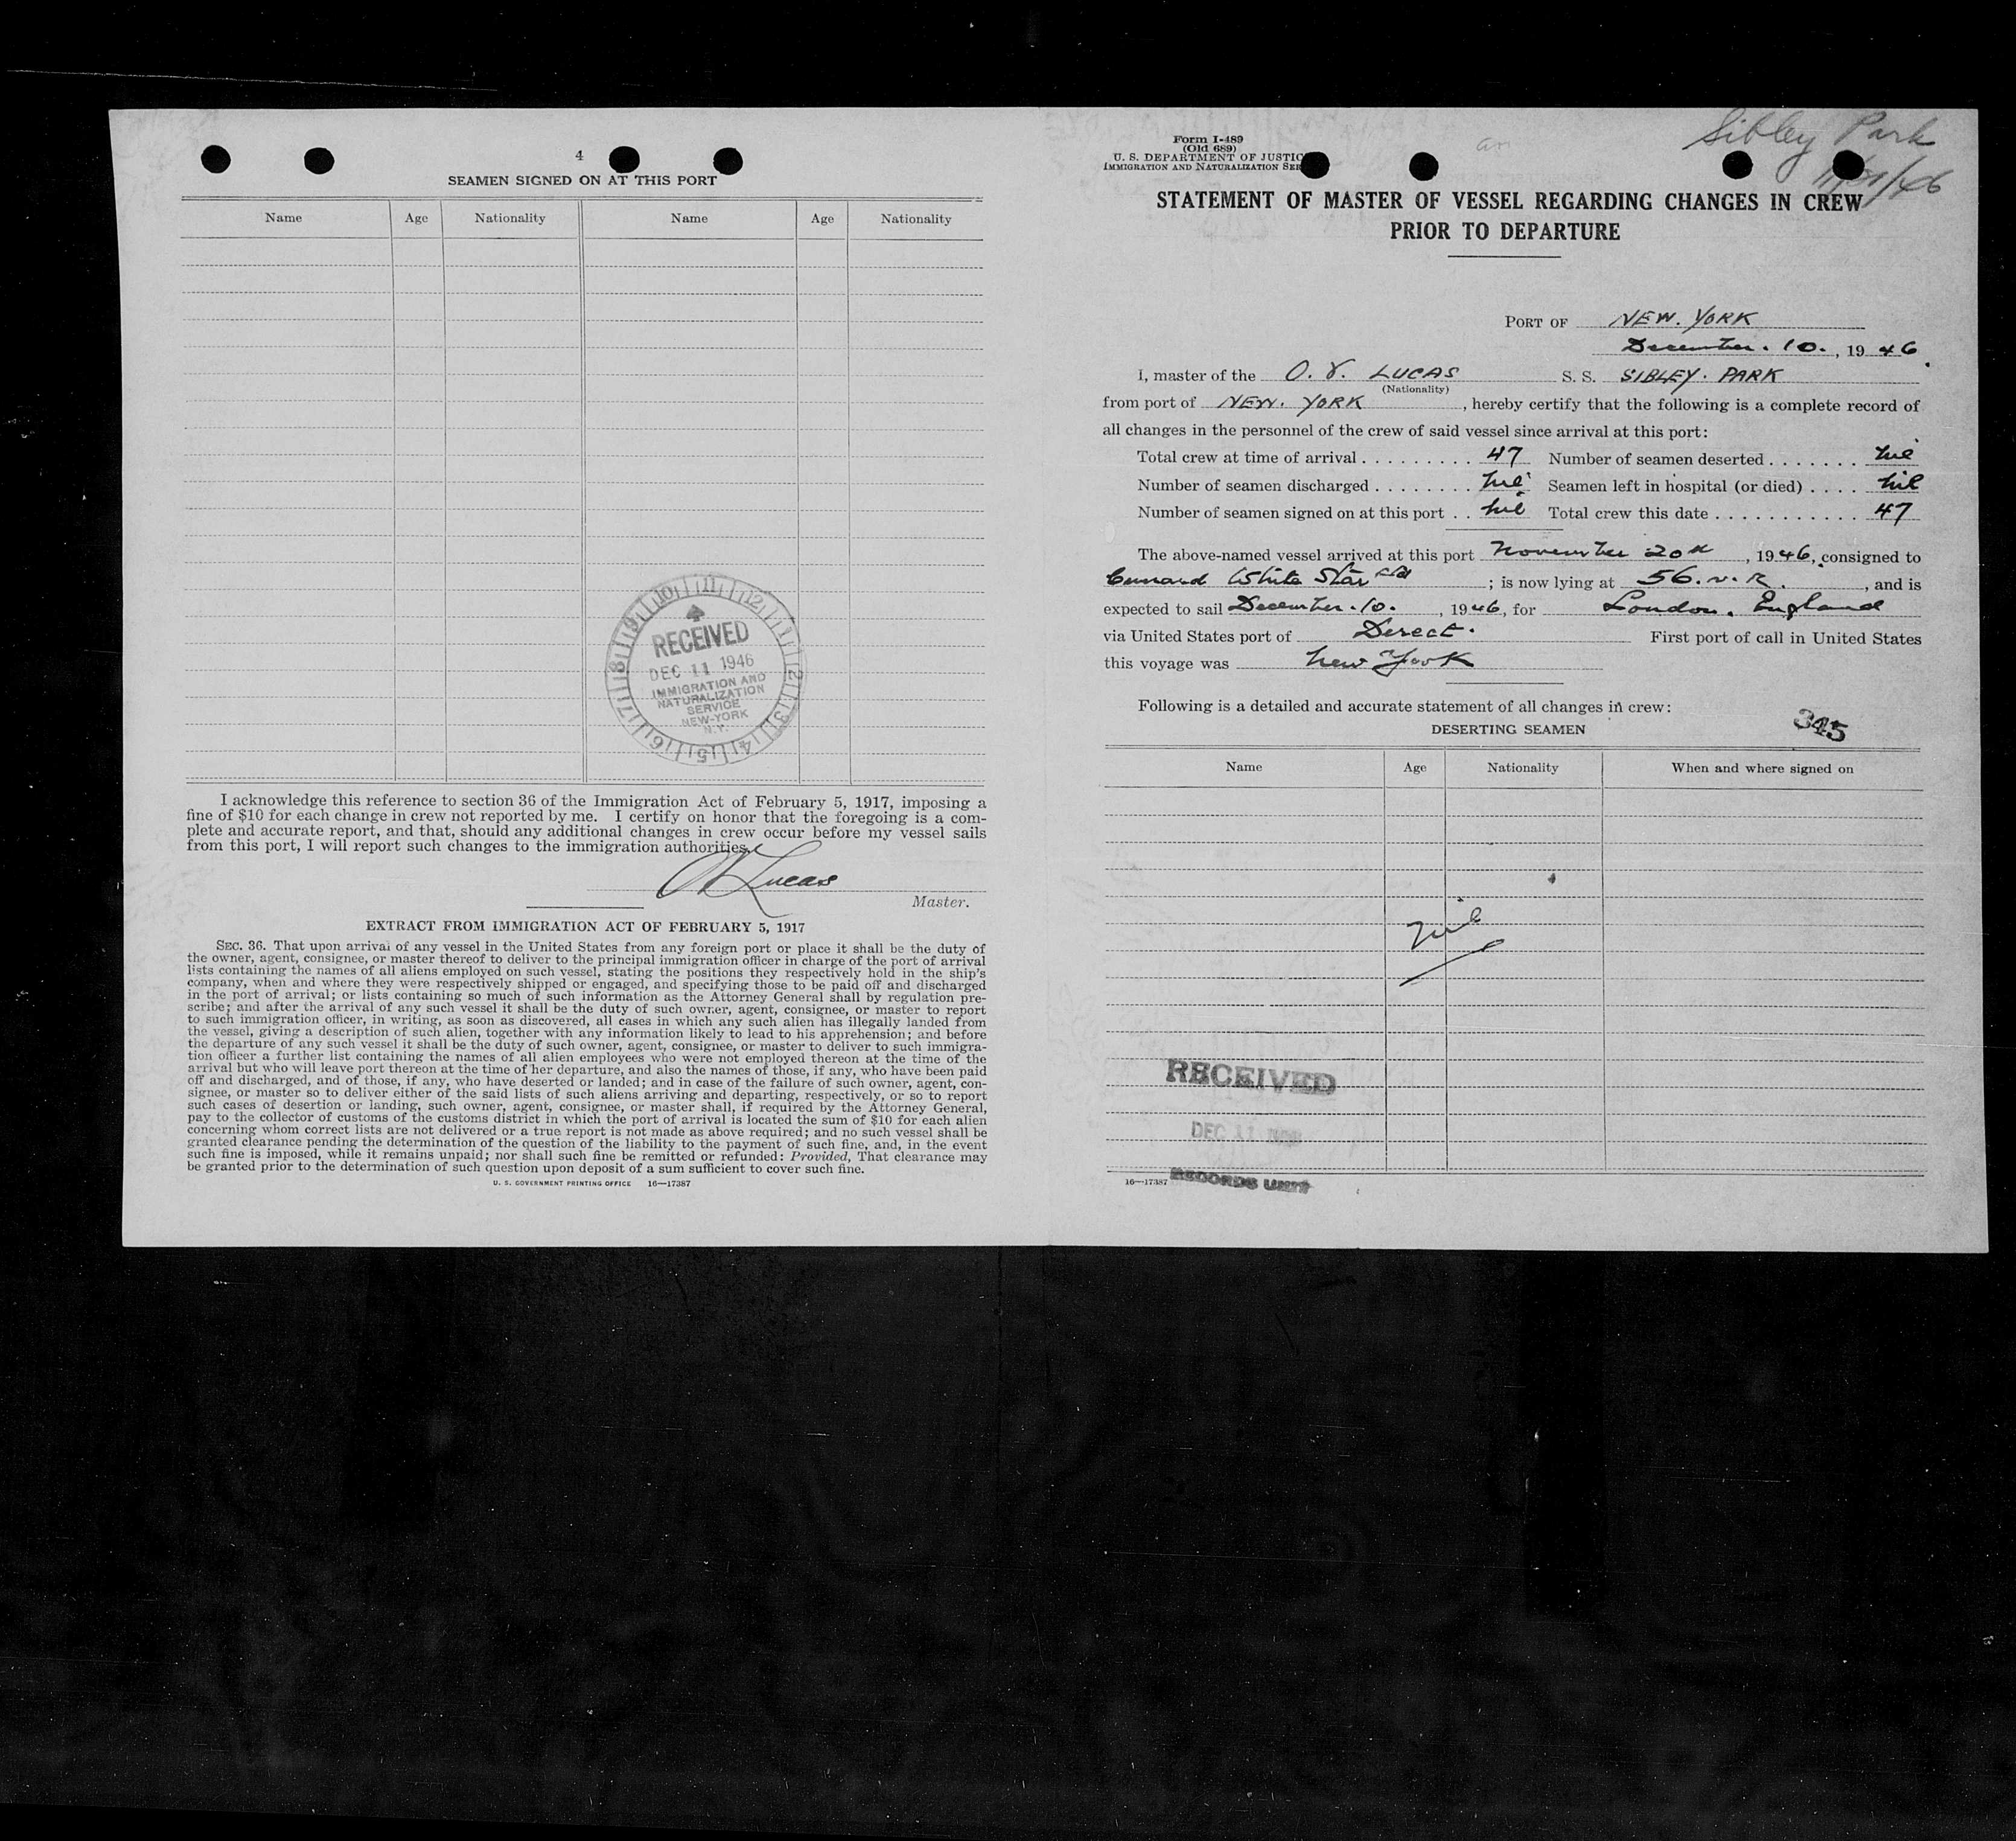 4
SEAMEN SIGNED ON AT THIS PORT
Name Age Nationality Name Age Nationality
11 12 1 2 3 4 5 6 7 8 9 10
RECEIVED
DEC 11 1946
IMMIGRATION AND
NATURALIZATION
SERVICE
NEW-YORK
N.Y.
I acknowledge this reference to section 36 of the Immigration Act of February 5, 1917, imposing a
fine of $10 for each change in crew not reported by me. I certify on honor that the foregoing is a com-
plete and accurate report, and that, should any additional changes in crew occur before my vessel sails
from this port, I will report such changes to the immigration authorities.
Lucas
Master.
EXTRACT FROM IMMIGRATION ACT OF FEBRUARY 5, 1917
SEC. 36. That upon arrival of any vessel in the United States from any foreign port or place it shall be the duty of
the owner, agent, consignee, or master thereof to deliver to the principal immigration officer in charge of the port of arrival
lists containing the names of all aliens employed on such vessel, stating the positions they respectively hold in the ship's
company, when and where they were respectively shipped or engaged, and specifying those to be paid off and discharged
in the port of arrival; or lists containing so much of such information as the Attorney General shall by regulation pre-
scribe; and after the arrival of any such vessel it shall be the duty of such owner, agent, consignee, or master to report
to such immigration officer, in writing, as soon as discovered, all cases in which any such alien has illegally landed from
the vessel, giving a description of such alien, together with any information likely to lead to his apprehension; and before
the departure of any such vessel it shall be the duty of such owner, agent, consignee, or master to deliver to such immigra-
tion officer a further list containing the names of all alien employees who were not employed thereon at the time of the
arrival but who will leave port thereon at the time of her departure, and also the names of those, if any, who have been paid
off and discharged, and of those, if any, who have deserted or landed; and in case of the failure of such owner, agent, con-
signee, or master so to deliver either of the said lists of such aliens arriving and departing, respectively, or so to report
such cases of desertion or landing, such owner, agent, consignee, or master shall, if required by the Attorney General,
pay to the collector of customs of the customs district in which the port of arrival is located the sum of $10 for each alien
concerning whom correct lists are not delivered or a true report is not made as above required; and no such vessel shall be
granted clearance pending the determination of the question of the liability to the payment of such fine, and, in the event
such fine is imposed, while it remains unpaid; nor shall such fine be remitted or refunded: Provided, That clearance may
be granted prior to the determination of such question upon deposit of a sum sufficient to cover such fine.
U. S. GOVERNMENT PRINTING OFFICE 16—17387
Sibley Park
Form I-489
(Old 689)
U. S. DEPARTMENT OF JUSTIC
IMMIGRATION AND NATURALIZATION SER
STATEMENT OF MASTER OF VESSEL REGARDING CHANGES IN CREW
PRIOR TO DEPARTURE
PORT OF NEW. YORK
December. 10., 1946.
I, master of the O. V. LUCAS S. S. SIBLEY. PARK
(Nationality)
from port of NEW. YORK, hereby certify that the following is a complete record of
all changes in the personnel of the crew of said vessel since arrival at this port:
Total crew at time of arrival . . . . . . . . . 47 Number of seamen deserted . . . . . . . nil
Number of seamen discharged . . . . . . . . nil Seamen left in hospital (or died) . . . . nil
Number of seamen signed on at this port . . nil Total crew this date . . . . . . . . . . . 47
The above-named vessel arrived at this port November 20th, 1946, consigned to
Cunard White Star Ltd; is now lying at 56. N. R., and is
expected to sail December. 10., 1946, for London. England
via United States port of Derect. First port of call in United States
this voyage was New York
Following is a detailed and accurate statement of all changes in crew:
345
DESERTING SEAMEN
Name Age Nationality When and where signed on
Nil
RECEIVED
DEC 11
RECORDS UNIT
16—17387